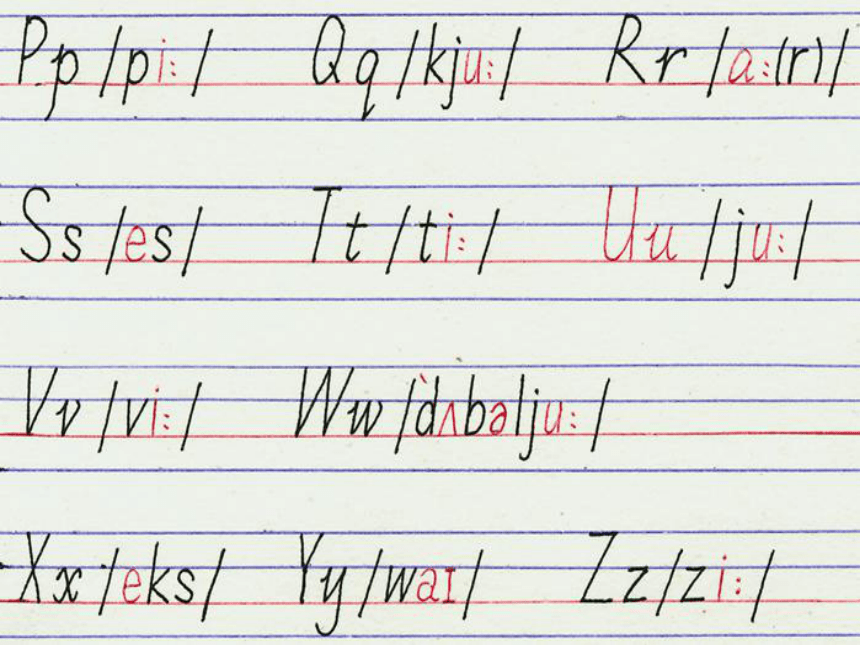 Pp /pi:/ Qq /kju:/ Rr /a:(r)/
Ss /es/ Tt /ti:/ Uu /ju:/
Vv /vi:/ Ww /ˋdʌbəlju:/
Xx /eks/ Yy /waɪ/ Zz /zi:/